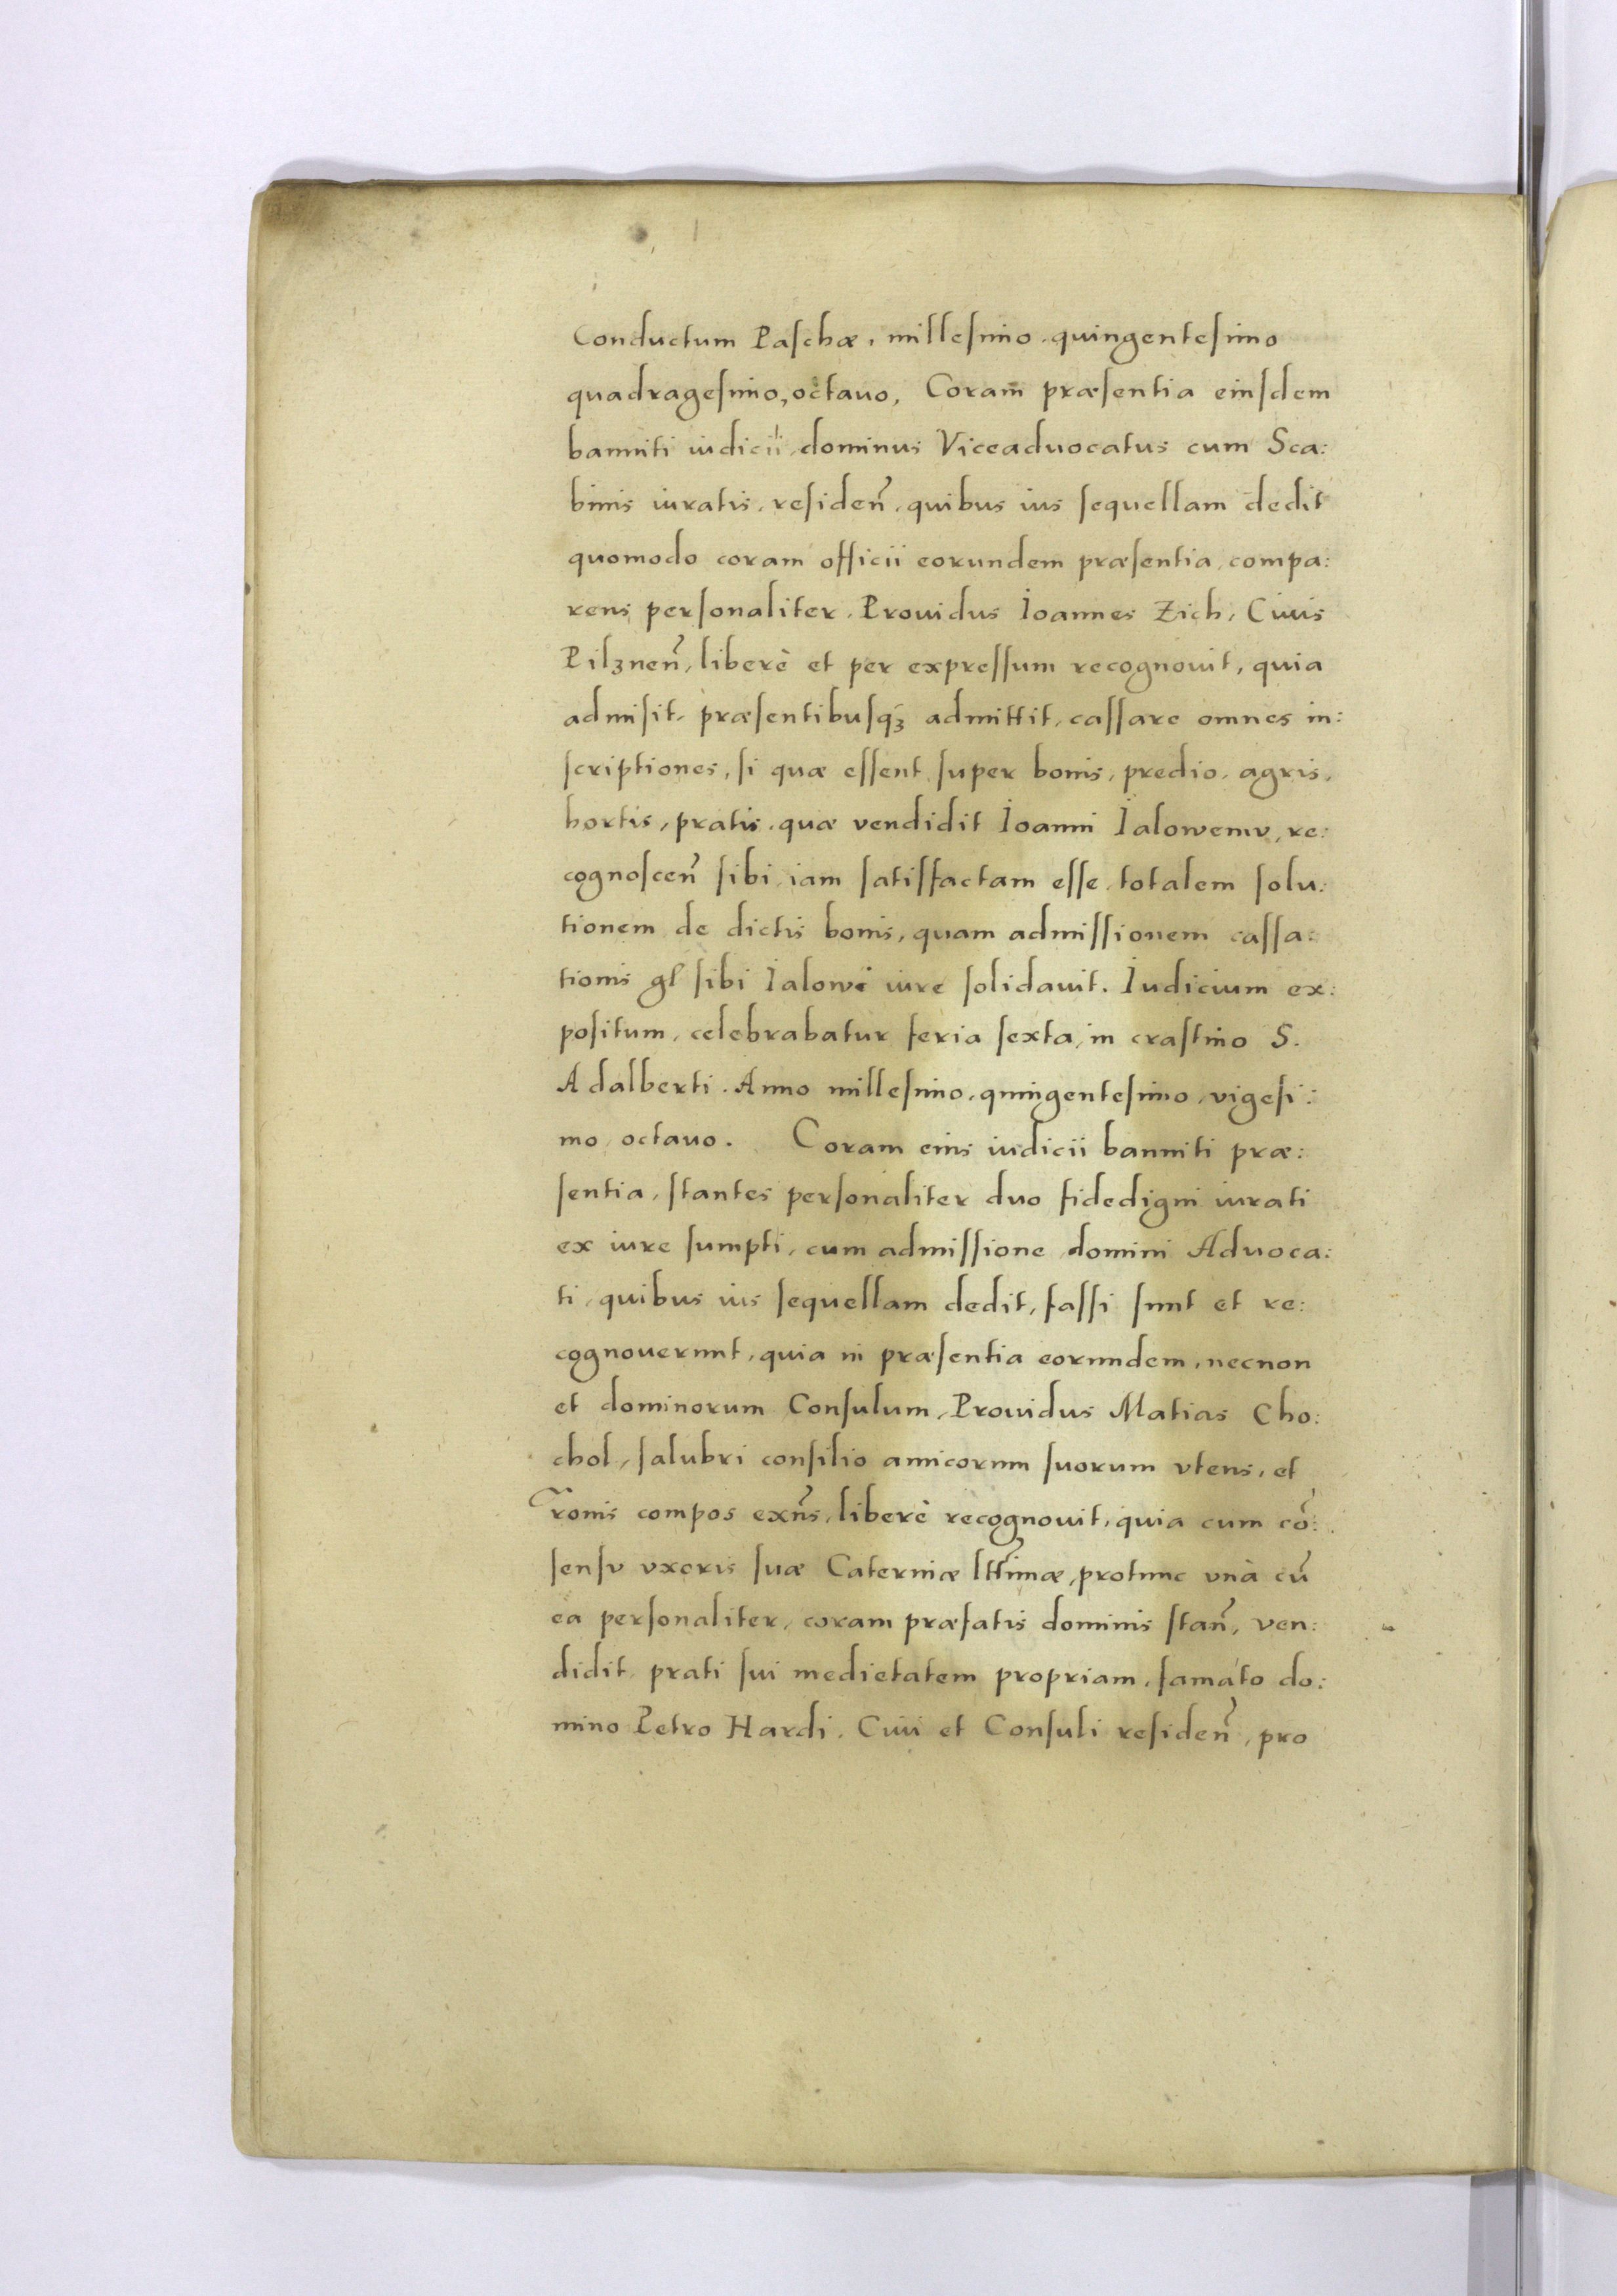 Conductum Paschæ, millesimo, quingentesimo
quadragesimo, octauo, Coram præsentia eiusdem
banniti iudicii, dominus Viceaduocatus cum Sca:
binis iuratis, residen̄, quibus ius sequellam dedit
quomodo coram officii eorundem præsentia, compa:
rens personaliter, Prouidus Ioannes Zich, Ciuis
Pilznen̄, liberè et per expressum recognouit, quia
admisit, præsentibusqȝ admittit, cassare omnes in:
scriptiones, si quæ essent super bonis, predio, agris,
hortis, pratis, quæ vendidit Ioanni Ialowemv, re:
cognoscen̄ sibi, iam satisfactam esse, totalem solu:
tionem de dictis bonis, quam admissionem cassa:
tionis gl sibi Ialowi iure solidauit. Iudicium ex:
positum, celebrabatur feria sexta, in crastino S.
Adalberti. Anno millesimo, quingentesimo, vigesi:
mo, octauo. Coram eius iudicii banniti præ:
sentia, stantes personaliter duo fidedigni iurati
ex iure sumpti, cum admissione domini Aduoca:
ti, quibus ius sequellam dedit, fassi sunt et re:
cognouerunt, quia in præsentia eorundem, necnon
et dominorum Consulum, Prouidus Matias Cho:
chol, salubri consilio amicorum suorum vtens, et
r̄onis compos exn̄s, liberè recognouit, quia cum cō:
sensv vxoris suæ Caterinæ ltt̄imæ, protunc vnà cū
ea personaliter, coram præfatis dominis stan̄, ven:
didit, prati sui medietatem propriam, famato do:
mino Petro Hardi, Ciui et Consuli residen̄, pro